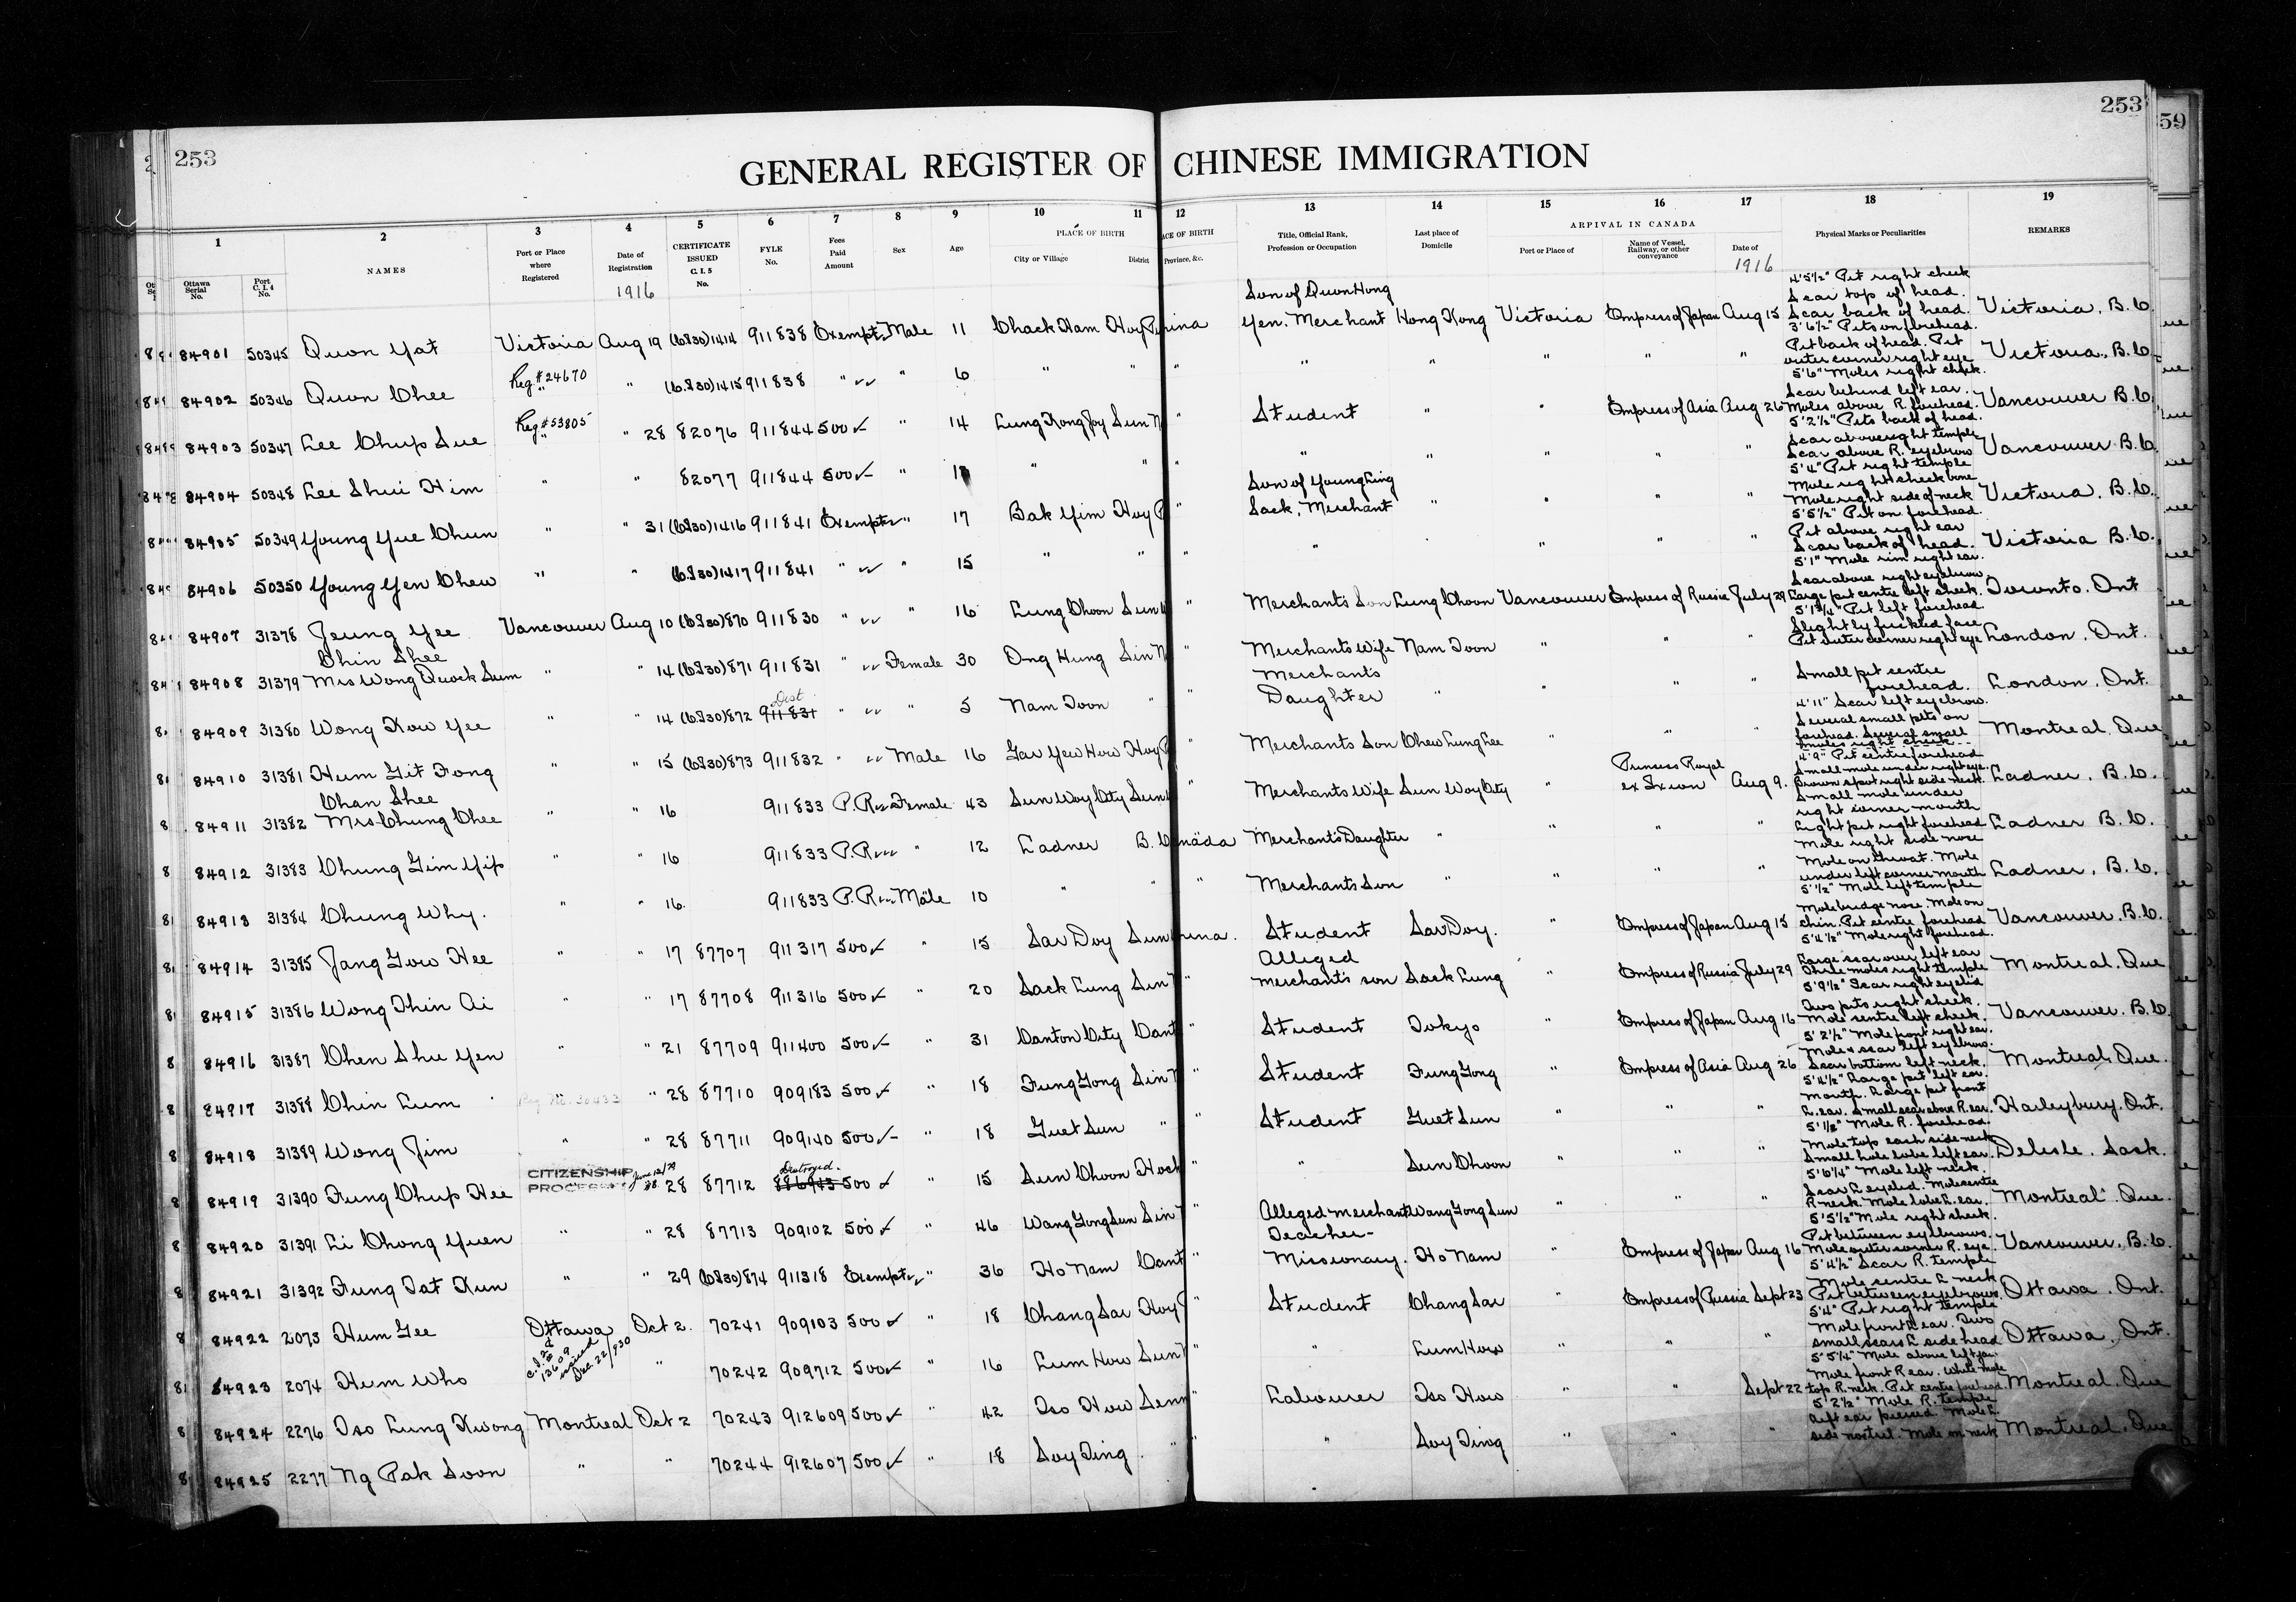 253
253
59
GENERAL REGISTER OF CHINESE IMMIGRATION
1 2 3 4 5 6 7 8 9 10 11 12 13 14 15 16 17 18 19
Ottawa Serial No.
Port C. I. 4 No.
NAMES
Port or Place where Registered
Date of Registration
1916
CERTIFICATE ISSUED C. I. 5 No.
FYLE No.
Fees Paid Amount
Sex
Age
PLACE OF BIRTH
City or Village
District
Province, &c.
Title, Official Rank, Profession or Occupation
Last place of Domicile
ARRIVAL IN CANADA
Port or Place of
Name of Vessel, Railway, or other conveyance
Date of
1916
Physical Marks or Peculiarities
REMARKS
84901 50345 Quon Yat Victoria Aug 19 (C.I.30) 1414 911838 Exempt Male 11 Chack Ham Hoy P China Son of Quon Hong Yen. Merchant Hong Kong Victoria Empress of Japan Aug 15 4'5½" Pit right cheek Scar top of head. Scar back of head. Victoria, B.C.
84902 50346 Quon Chee Reg # 24670 " " (C.I.30) 1415 911838 " " 6 " " " " " " " " 3'6½" Pits on forehead. Pit back of head. Pit outer corner right eye Victoria, B.C.
84903 50347 Lee Chup Sue Reg # 53805 " " 28 82076 911844 500 " 14 Lung Kong Joy Sun N " Student " " Empress of Asia Aug 26 5'6" Moles right cheek. Scar behind left ear. Moles above R. forehead. Vancouver B.C.
84904 50348 Lee Shui Him " " 82077 911844 500 " " " " " " " " " 5'2½" Pits back of head. Scar above right temple Scar above R. eyebrow Vancouver B.C.
84905 50349 Young Yue Chun " " 31 (C.I.30) 1416 911841 Exempt " 17 Bak Yim Hoy P " Son of Young Ling Sack, Merchant " " " " 5'4" Pit right temple Mole right cheek bone Mole right side of neck Victoria, B.C.
84906 50350 Young Yen Chew " " (C.I.30) 1417 911841 " " 15 " " " " " " " 5'5½" Pit on forehead. Pit above right ear Scar back of head. Victoria B.C.
84907 31378 Jeung Yee Vancouver Aug 10 (C.I.30) 870 911830 " " 16 Lung Choon Sun W " Merchants Son Lung Choon Vancouver Empress of Russia July 29 5'1" Mole rim right ear. Scar above right eyebrow. Large pit centre left cheek. Toronto. Ont
84908 31379 Chin Shee Mrs Wong Quock Sum " " 14 (C.I.30) 871 911831 " Female 30 Ong Hung Sin N " Merchants Wife Nam Toon " " " 5'1¾" Pit left forehead Slightly freckled face Pit outer corner right eye London. Ont.
84909 31380 Wong Kow Yee " " 14 (C.I.30) 872 Dest 911831 " " 5 Nam Toon " " Merchants Daughter " " " " Small pit centre forehead. London. Ont.
84910 31381 Hum Git Fong " " 15 (C.I.30) 873 911832 " Male 16 Gar Yew How Hoy P " Merchants Son Chew Lung Lee " " " 4'11" Scar left eyebrow. Several small pits on forehead. Several small moles right cheek Montreal, Que
84911 31382 Chan Shee Mrs Chung Chee " " 16 911833 P.R. Female 43 Sun Woy City Sun W " Merchants Wife Sun Woy City " Princess Royal ex Ixion Aug 9. 4'9" Pit centre forehead Small mole under right eye. Brown spot right side neck. Ladner, B.C.
84912 31383 Chung Gim Yip " " 16 911833 P.R. " 12 Ladner B.C. Canada Merchant's Daughter " " " " Small mole under right corner mouth Light pit right forehead Ladner B.C.
84913 31384 Chung Why. " " 16. 911833 P.R. Male 10 " " " Merchants Son " " " " Mole right side nose Mole on throat. Mole under left corner mouth Ladner, B.C.
84914 31385 Jang Gow Hee " " 17 87707 911317 500 " 15 Sar Doy Sun China. Student Sar Doy. " Empress of Japan Aug 15 5'½" Mole left temple Mole bridge nose. Mole on chin. Pit centre forehead Vancouver, B.C.
84915 31386 Wong Thin Ai " " 17 87708 911316 500 " 20 Sack Lung Sin N " Alleged merchant's son Sack Lung " Empress of Russia July 29 5'4½" Mole right forehead. Large scar over left ear Three moles right temple Montreal, Que
84916 31387 Chen Shu Yen " " 21 87709 911400 500 " 31 Canton City Cant " Student Tokyo " Empress of Japan Aug 16 5'9½" Scar right eyelid Two pits right cheek. Mole centre left cheek. Vancouver. B.C.
84917 31388 Chin Lum Reg. No. 30433 " " 28 87710 909183 500 " 18 Fung Gong Sin N " Student Fung Gong " Empress of Asia Aug 26 5'2½" Mole front right ear. Mole & scar left eyebrow. Scar bottom left neck. Montreal, Que.
84918 31389 Wong Jim " " 28 87711 909140 500 " 18 Guet Sun " " Student Guet Sun " " " 5'4½" Large pit left ear. Mouth. Large pit front L. ear. Small scar above R. ear. Haileybury, Ont.
84919 31390 Fung Chup Hee CITIZENSHIP PROCESSED June 12/79 28 87712 Destroyed. 886943 500 " 15 Sun Choon Hock " " Sun Choon " " " 5'1½" Mole R. forehead. Mole top each side neck Small hole lobe left ear. Delisle. Sask.
84920 31391 Li Chong Yuen " " 28 87713 909102 500 " 46 Wang Gong Sun Sin N " Alleged merchant Wang Gong Sun " " " 5'6¼" Mole left neck. Scar L eyelid. Mole centre R. neck. Mole lobe L. ear. Montreal. Que.
84921 31392 Fung Tat Kun " " 29 (C.I.30) 874 911318 Exempt " 36 Ho Nam Cant " Teacher - Missionary. Ho Nam " Empress of Japan Aug 16 5'5½" Mole right cheek. Pit between eyebrows. Mole outer corner R. eye. Vancouver, B.C.
84922 2073 Hum Gee Ottawa Oct 2. 70241 909103 500 " 18 Chang Sar Hoy P " Student Chang Sar " Empress of Russia Sept 23 5'4½" Scar R. temple Mole centre L neck Pit between eyebrows. Ottawa. Ont.
84923 2074 Hum Who C.I.28 # 13609 issued Dec. 22/930 " 70242 909712 500 " 16 Lum How Sun N " " Lum How " " " 5'4" Pit right temple Mole front L ear. Two small scars L side head Ottawa, Ont.
84924 2276 Tso Lung Kwong Montreal Oct 2 70243 912609 500 " 42 Tso How Sun " Labourer Tso How " " Sept 22 5'5¼" Mole above left jaw. Mole front R ear. White mole top R. neck. Pit centre forehead. Montreal. Que
84925 2277 Ng Pak Soon " " 70244 912607 500 " 18 Soy Ting. " " " Soy Ting " " " 5'2½" Mole R. temple Left ear pierced. Mole L. side nostril. Mole on neck Montreal. Que